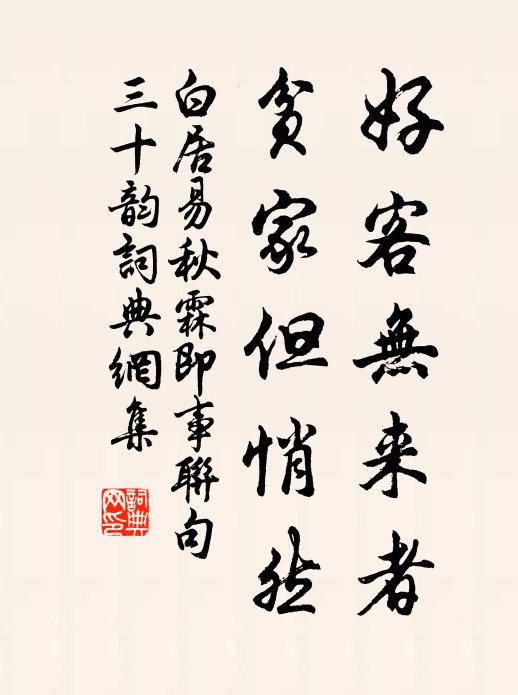 好客無来者
貧家但悄然
白居易秋霖即事聯句
三十韵詞典網集
詞典
网印